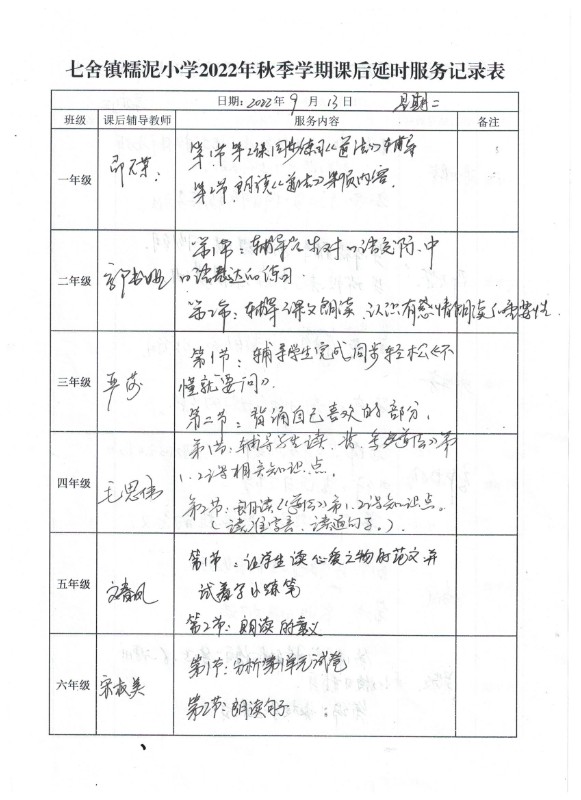 七舍镇糯泥小学2022年秋季学期课后延时服务记录表
日期：2022年9月13日 星期二
班级 课后辅导教师 服务内容 备注
一年级
第1节 第2课同步练习《道法》辅导
第2节 朗读《道法》第1页内容.
二年级
第1节：辅导学生对口语交际、中
口语表达的练习.
第二节：辅导课文朗读、认识有感情朗读的重要性.
三年级
第1节：辅导学生完成同步轻松《不
懂就要问》.
第二节：背诵自己喜欢的部分.
四年级 毛思
第1节：辅导学生读、背《道法》第
1.2课相关知识点.
第2节：朗读《道法》第1.2课知识点。
（读准字音、读通句子。）.
五年级 文春风
第1节：让学生读心爱之物的范文并
试着写小练笔
第2节：朗读的意义
六年级 宋叔美
第1节：分析第1单元试卷
第2节：朗读句子